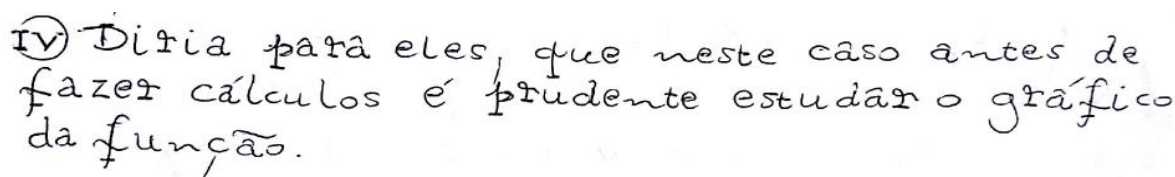 IV Diria para eles, que neste caso antes de
fazer cálculos é prudente estudar o gráfico
da função.